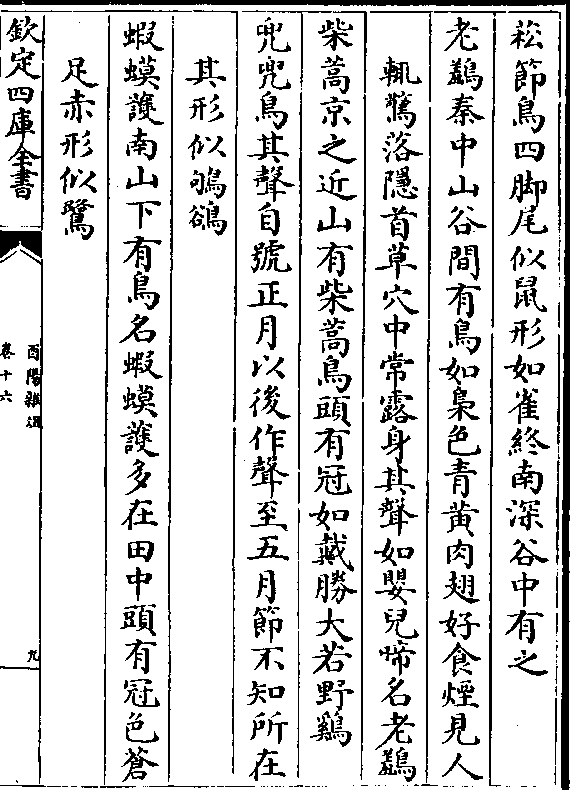 菘節鳥四脚尾似鼠形如雀終南深谷中有之
老鵽秦中山谷間有鳥如梟色青黃肉翅好食煙見人
輒驚落隱首草穴中常露身其聲如嬰兒啼名老鵽
柴蒿京之近山有柴蒿鳥頭有冠如戴勝大若野鷄
兜兜鳥其聲自號正月以後作聲至五月節不知所在
其形似鴝鵒
蝦蟆護南山下有鳥名蝦蟆護多在田中頭有冠色蒼
足赤形似鷺
欽定四庫全書
酉陽雜俎
卷十六
九